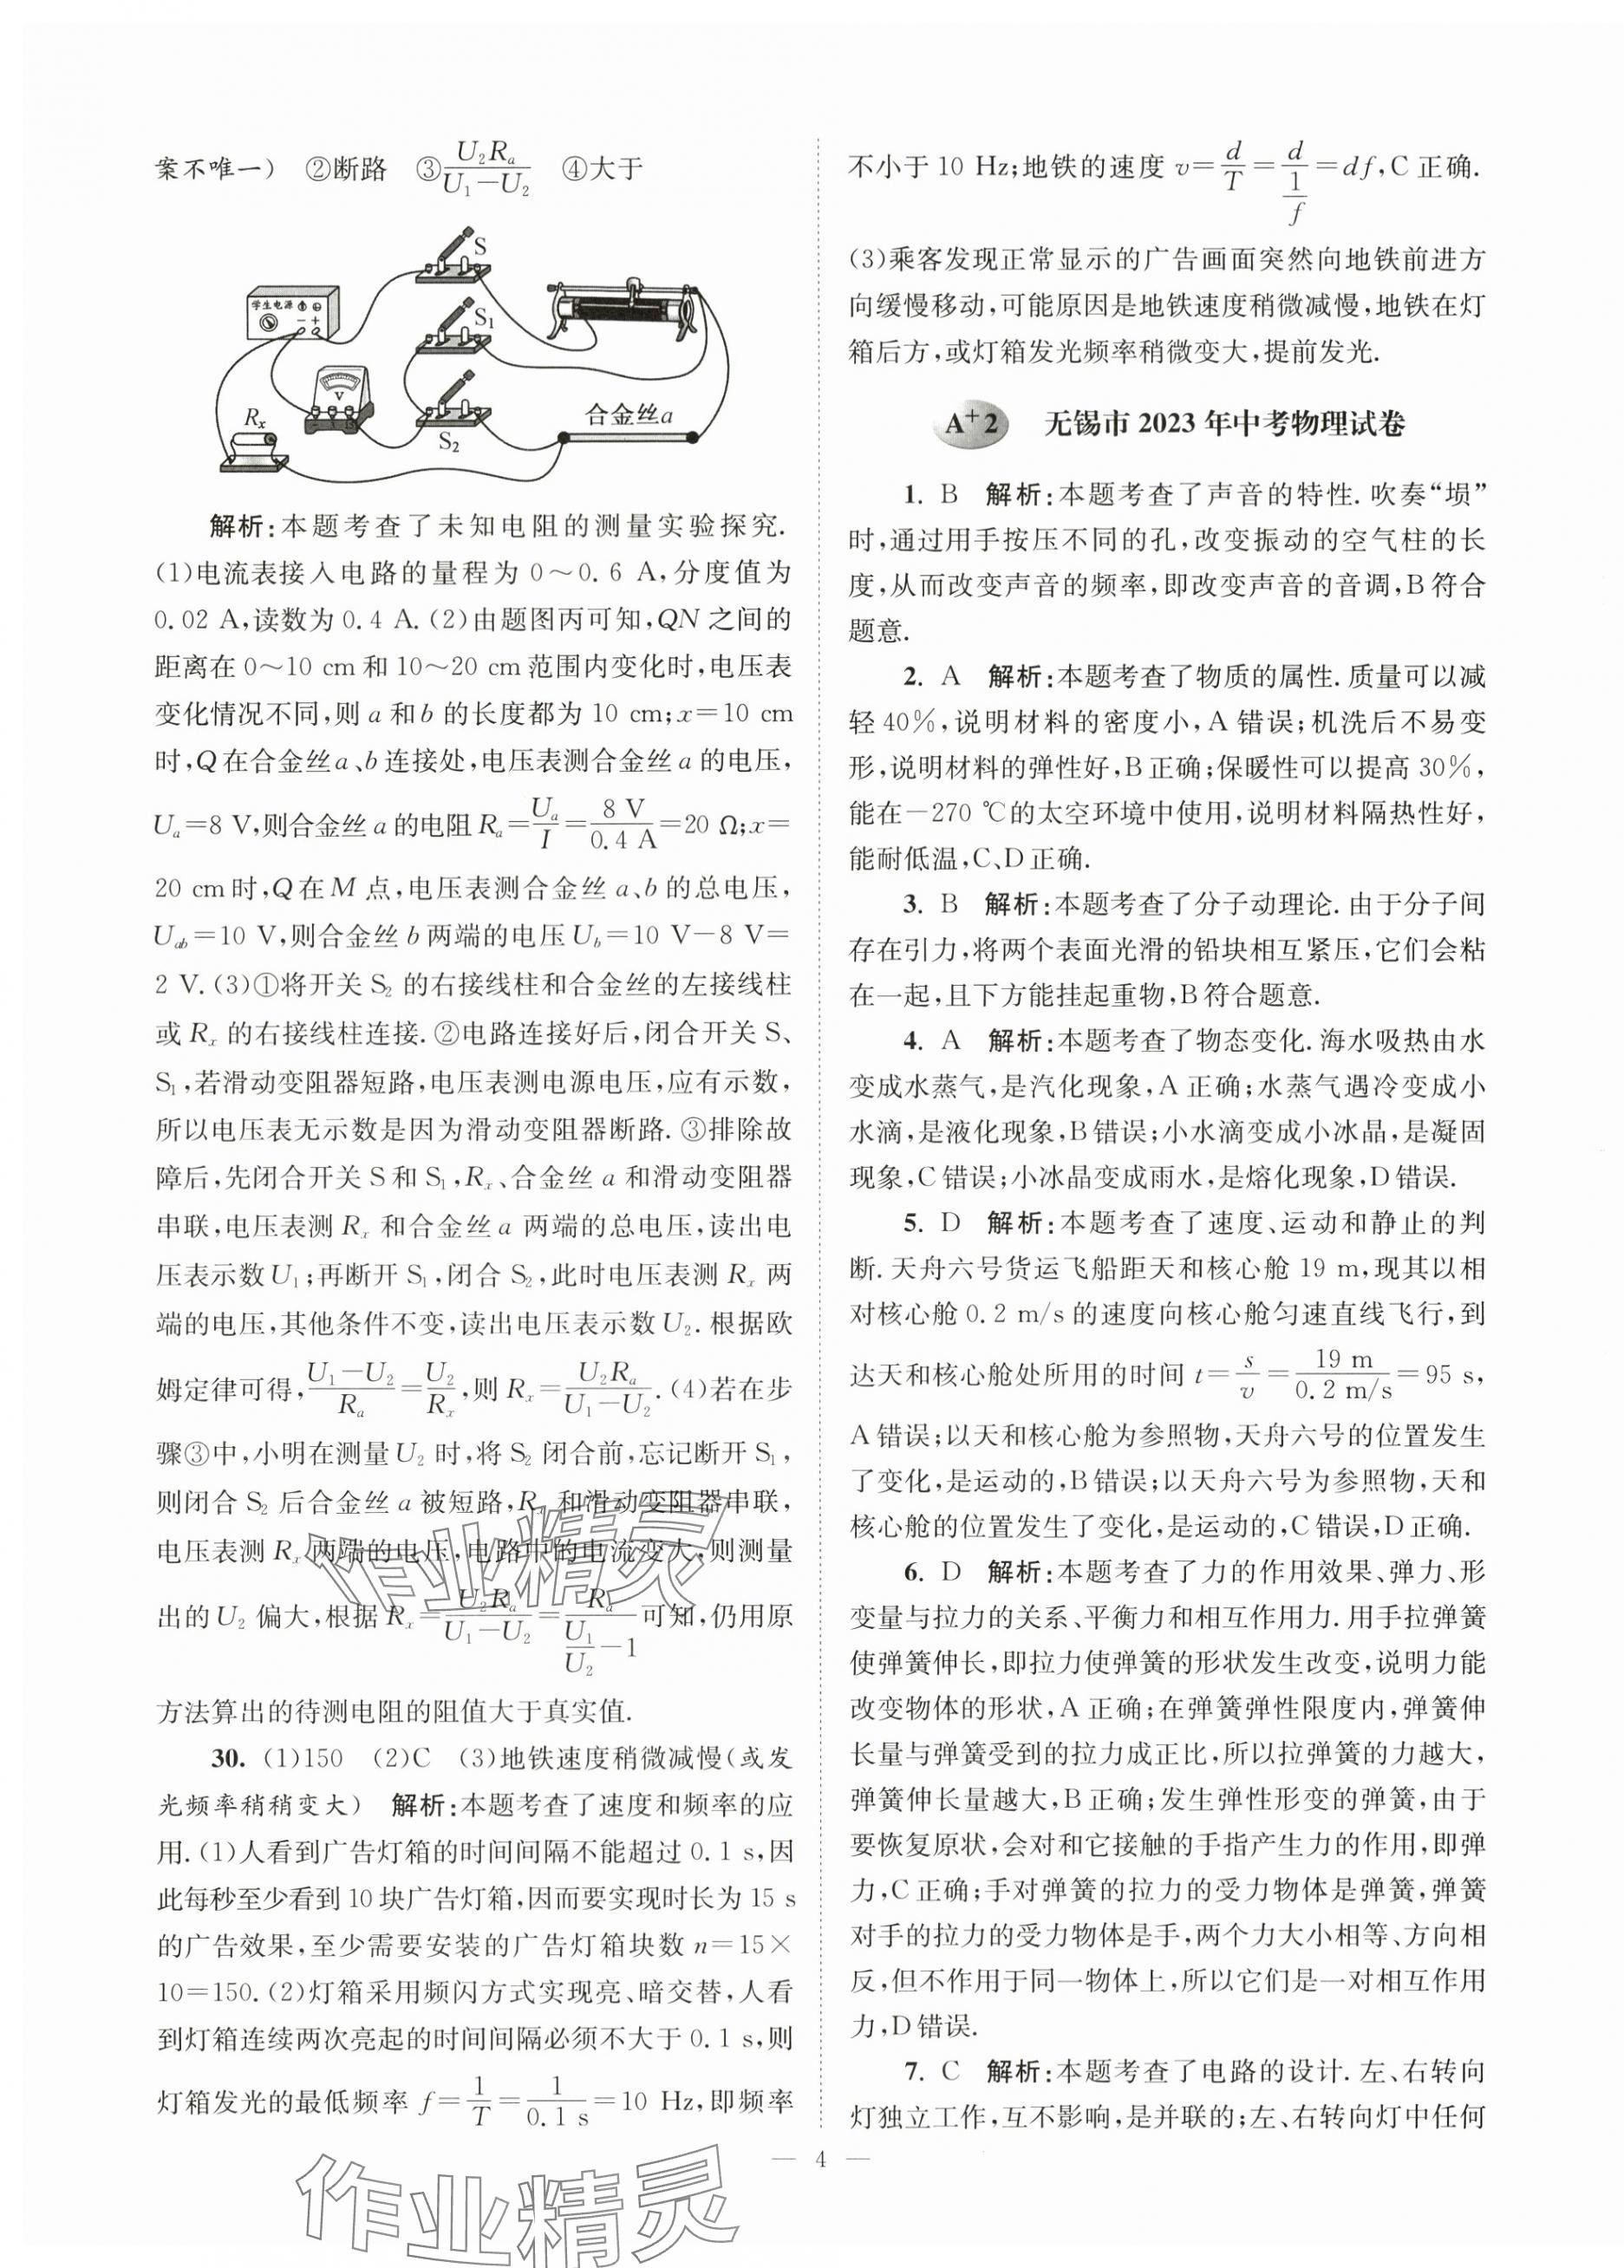 案不唯一) ②断路 ③U₂Rₐ/(U₁－U₂) ④大于
学生电源
S
S₁
S₂
V
Rₓ
合金丝a
解析:本题考查了未知电阻的测量实验探究.
(1)电流表接入电路的量程为 0～0.6 A,分度值为
0.02 A,读数为 0.4 A.(2)由题图丙可知,QN 之间的
距离在 0～10 cm 和 10～20 cm 范围内变化时,电压表
变化情况不同,则 a 和 b 的长度都为 10 cm;x=10 cm
时,Q 在合金丝 a、b 连接处,电压表测合金丝 a 的电压,
Uₐ=8 V,则合金丝 a 的电阻 Rₐ=Uₐ/I=8 V/0.4 A=20 Ω;x=
20 cm 时,Q 在 M 点,电压表测合金丝 a、b 的总电压,
U_ab=10 V,则合金丝 b 两端的电压 U_b=10 V－8 V=
2 V.(3)①将开关 S₂ 的右接线柱和合金丝的左接线柱
或 Rₓ 的右接线柱连接.②电路连接好后,闭合开关 S、
S₁,若滑动变阻器短路,电压表测电源电压,应有示数,
所以电压表无示数是因为滑动变阻器断路.③排除故
障后,先闭合开关 S 和 S₁,Rₓ、合金丝 a 和滑动变阻器
串联,电压表测 Rₓ 和合金丝 a 两端的总电压,读出电
压表示数 U₁;再断开 S₁,闭合 S₂,此时电压表测 Rₓ 两
端的电压,其他条件不变,读出电压表示数 U₂.根据欧
姆定律可得,(U₁－U₂)/Rₐ=U₂/Rₓ,则 Rₓ=U₂Rₐ/(U₁－U₂).(4)若在步
骤③中,小明在测量 U₂ 时,将 S₂ 闭合前,忘记断开 S₁,
则闭合 S₂ 后合金丝 a 被短路,Rₓ 和滑动变阻器串联,
电压表测 Rₓ 两端的电压,电路中的电流变大,则测量
出的 U₂ 偏大,根据 Rₓ=U₂Rₐ/(U₁－U₂)=Rₐ/(U₁/U₂－1)可知,仍用原
方法算出的待测电阻的阻值大于真实值.
30. (1)150 (2)C (3)地铁速度稍微减慢(或发
光频率稍稍变大) 解析:本题考查了速度和频率的应
用.(1)人看到广告灯箱的时间间隔不能超过 0.1 s,因
此每秒至少看到 10 块广告灯箱,因而要实现时长为 15 s
的广告效果,至少需要安装的广告灯箱块数 n=15×
10=150.(2)灯箱采用频闪方式实现亮、暗交替,人看
到灯箱连续两次亮起的时间间隔必须不大于 0.1 s,则
灯箱发光的最低频率 f=1/T=1/0.1 s=10 Hz,即频率
不小于 10 Hz;地铁的速度 v=d/T=d/(1/f)=df,C 正确.
(3)乘客发现正常显示的广告画面突然向地铁前进方
向缓慢移动,可能原因是地铁速度稍微减慢,地铁在灯
箱后方,或灯箱发光频率稍微变大,提前发光.
A⁺2 无锡市 2023 年中考物理试卷
1. B 解析:本题考查了声音的特性.吹奏“埙”
时,通过用手按压不同的孔,改变振动的空气柱的长
度,从而改变声音的频率,即改变声音的音调,B 符合
题意.
2. A 解析:本题考查了物质的属性.质量可以减
轻 40%,说明材料的密度小,A 错误;机洗后不易变
形,说明材料的弹性好,B 正确;保暖性可以提高 30%,
能在－270 ℃的太空环境中使用,说明材料隔热性好,
能耐低温,C、D 正确.
3. B 解析:本题考查了分子动理论.由于分子间
存在引力,将两个表面光滑的铅块相互紧压,它们会粘
在一起,且下方能挂起重物,B 符合题意.
4. A 解析:本题考查了物态变化.海水吸热由水
变成水蒸气,是汽化现象,A 正确;水蒸气遇冷变成小
水滴,是液化现象,B 错误;小水滴变成小冰晶,是凝固
现象,C 错误;小冰晶变成雨水,是熔化现象,D 错误.
5. D 解析:本题考查了速度、运动和静止的判
断.天舟六号货运飞船距天和核心舱 19 m,现其以相
对核心舱 0.2 m/s 的速度向核心舱匀速直线飞行,到
达天和核心舱处所用的时间 t=s/v=19 m/0.2 m/s=95 s,
A 错误;以天和核心舱为参照物,天舟六号的位置发生
了变化,是运动的,B 错误;以天舟六号为参照物,天和
核心舱的位置发生了变化,是运动的,C 错误,D 正确.
6. D 解析:本题考查了力的作用效果、弹力、形
变量与拉力的关系、平衡力和相互作用力.用手拉弹簧
使弹簧伸长,即拉力使弹簧的形状发生改变,说明力能
改变物体的形状,A 正确;在弹簧弹性限度内,弹簧伸
长量与弹簧受到的拉力成正比,所以拉弹簧的力越大,
弹簧伸长量越大,B 正确;发生弹性形变的弹簧,由于
要恢复原状,会对和它接触的手指产生力的作用,即弹
力,C 正确;手对弹簧的拉力的受力物体是弹簧,弹簧
对手的拉力的受力物体是手,两个力大小相等、方向相
反,但不作用于同一物体上,所以它们是一对相互作用
力,D 错误.
7. C 解析:本题考查了电路的设计.左、右转向
灯独立工作,互不影响,是并联的;左、右转向灯中任何
— 4 —
作业精灵
作业精灵